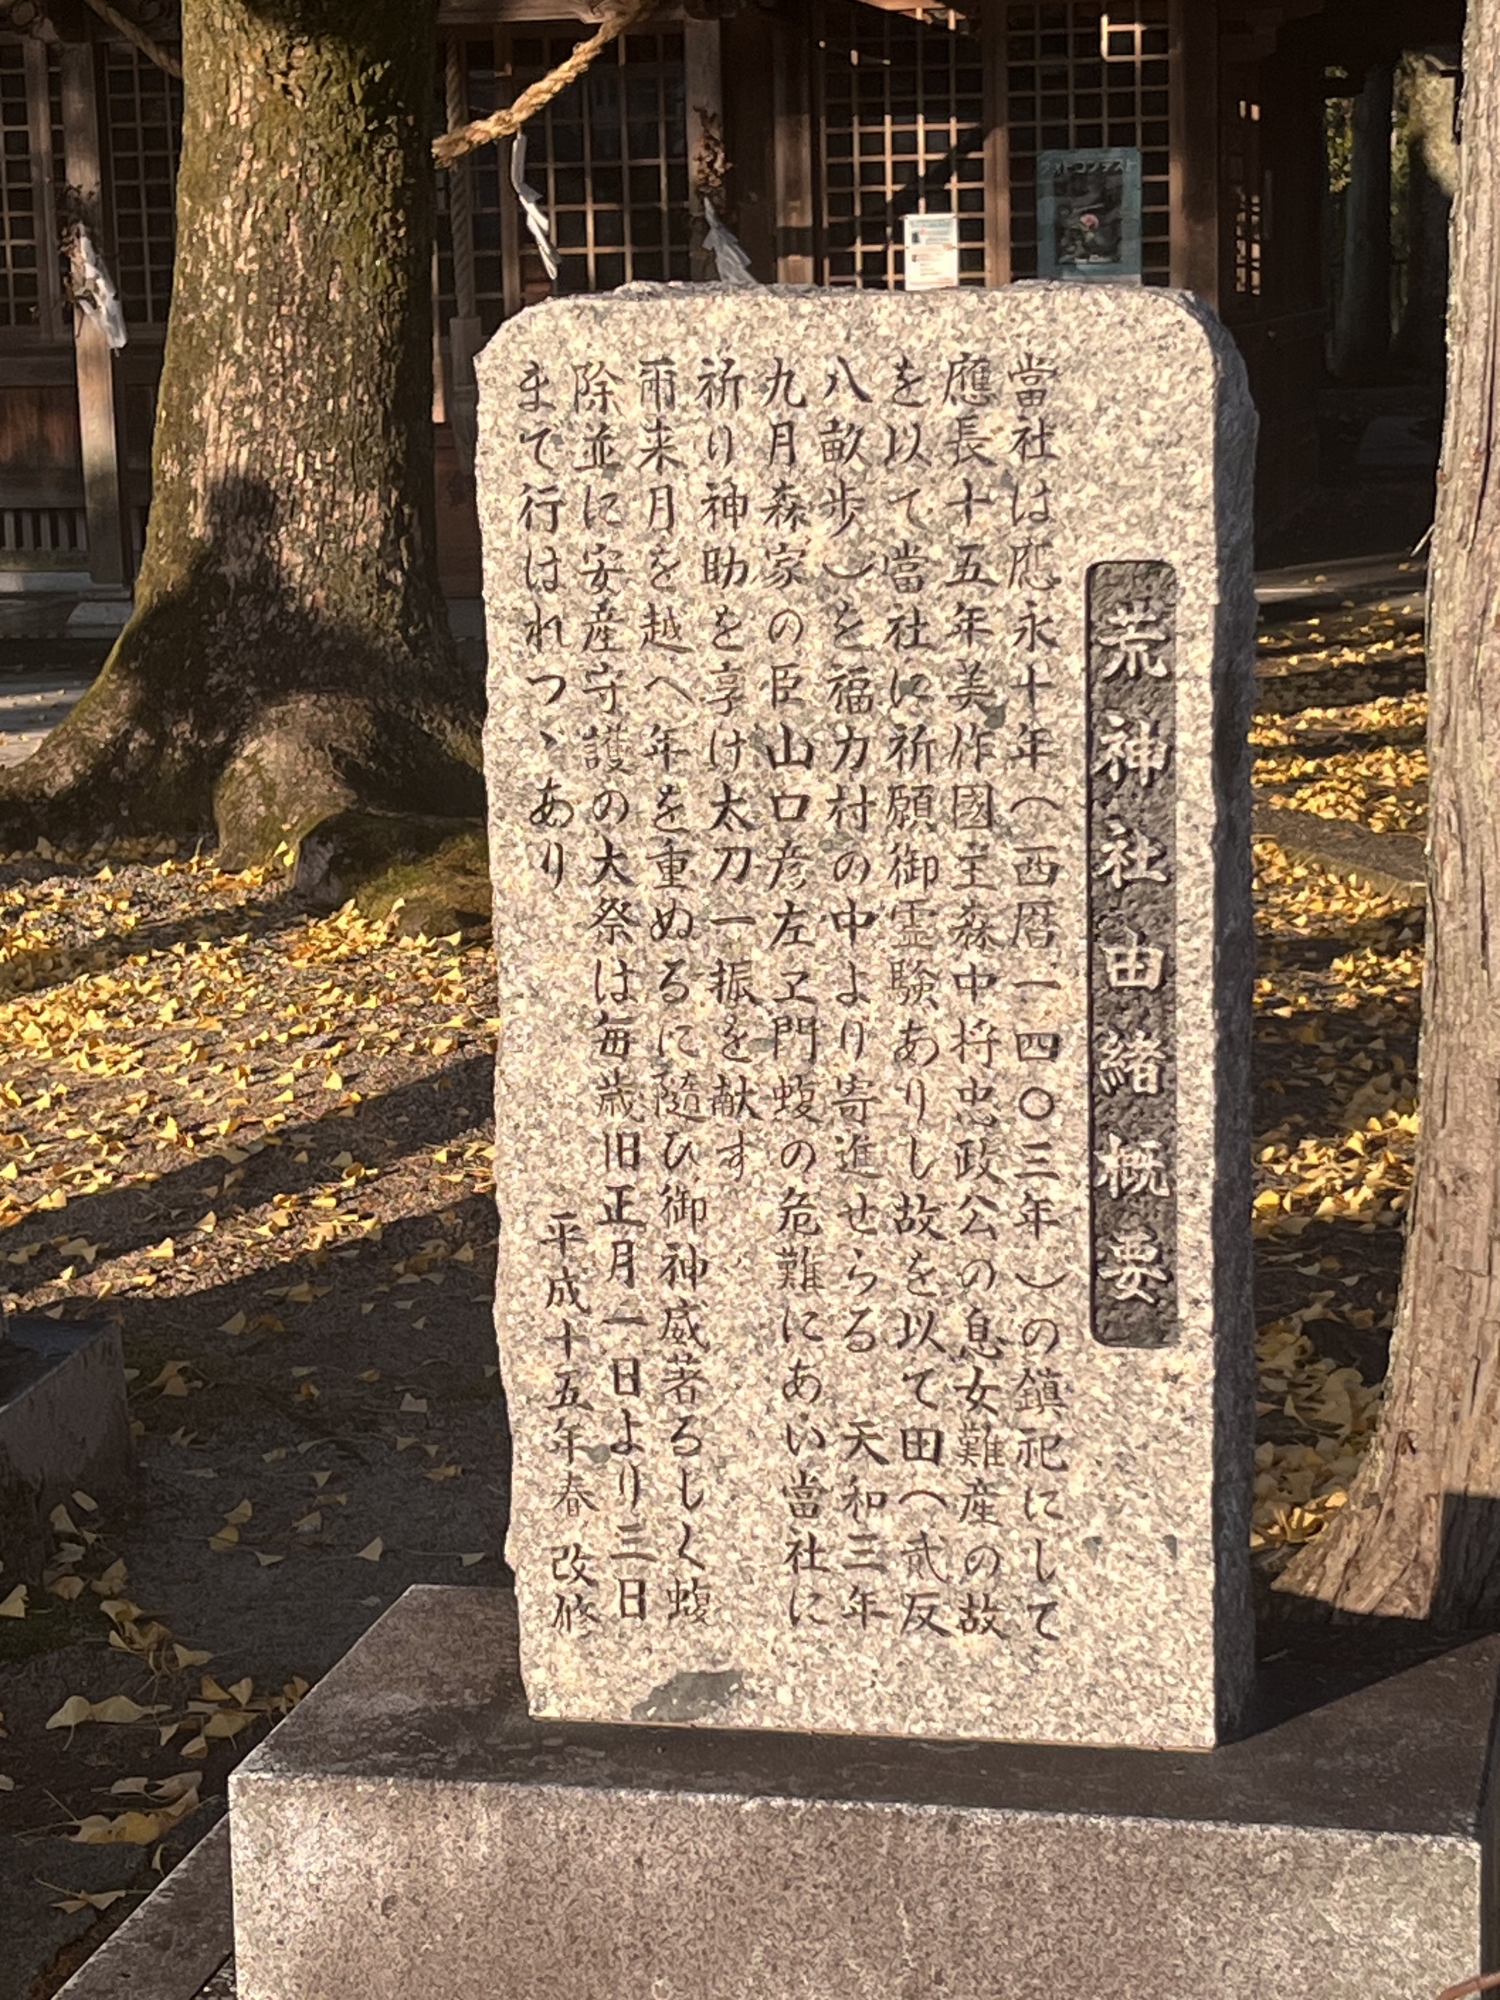 荒神社由緒概要
當社は應永十年(西暦一四〇三年)の鎮祀にして
應長十五年美作國主森中将忠政公の息女難産の故
を以て當社に祈願御霊験ありし故を以て田(貳反
八畝歩)を福力村の中より寄進せらる 天和三年
九月森家の臣山口彦左ヱ門蝮の危難にあい當社に
祈り神助を享け太刀一振を献す
爾来月を越へ年を重ぬるに隨ひ御神威著るしく蝮
除並に安産守護の大祭は毎歳旧正月一日より三日
まで行はれつゝあり
平成十五年春 改修
フォトコンテスト